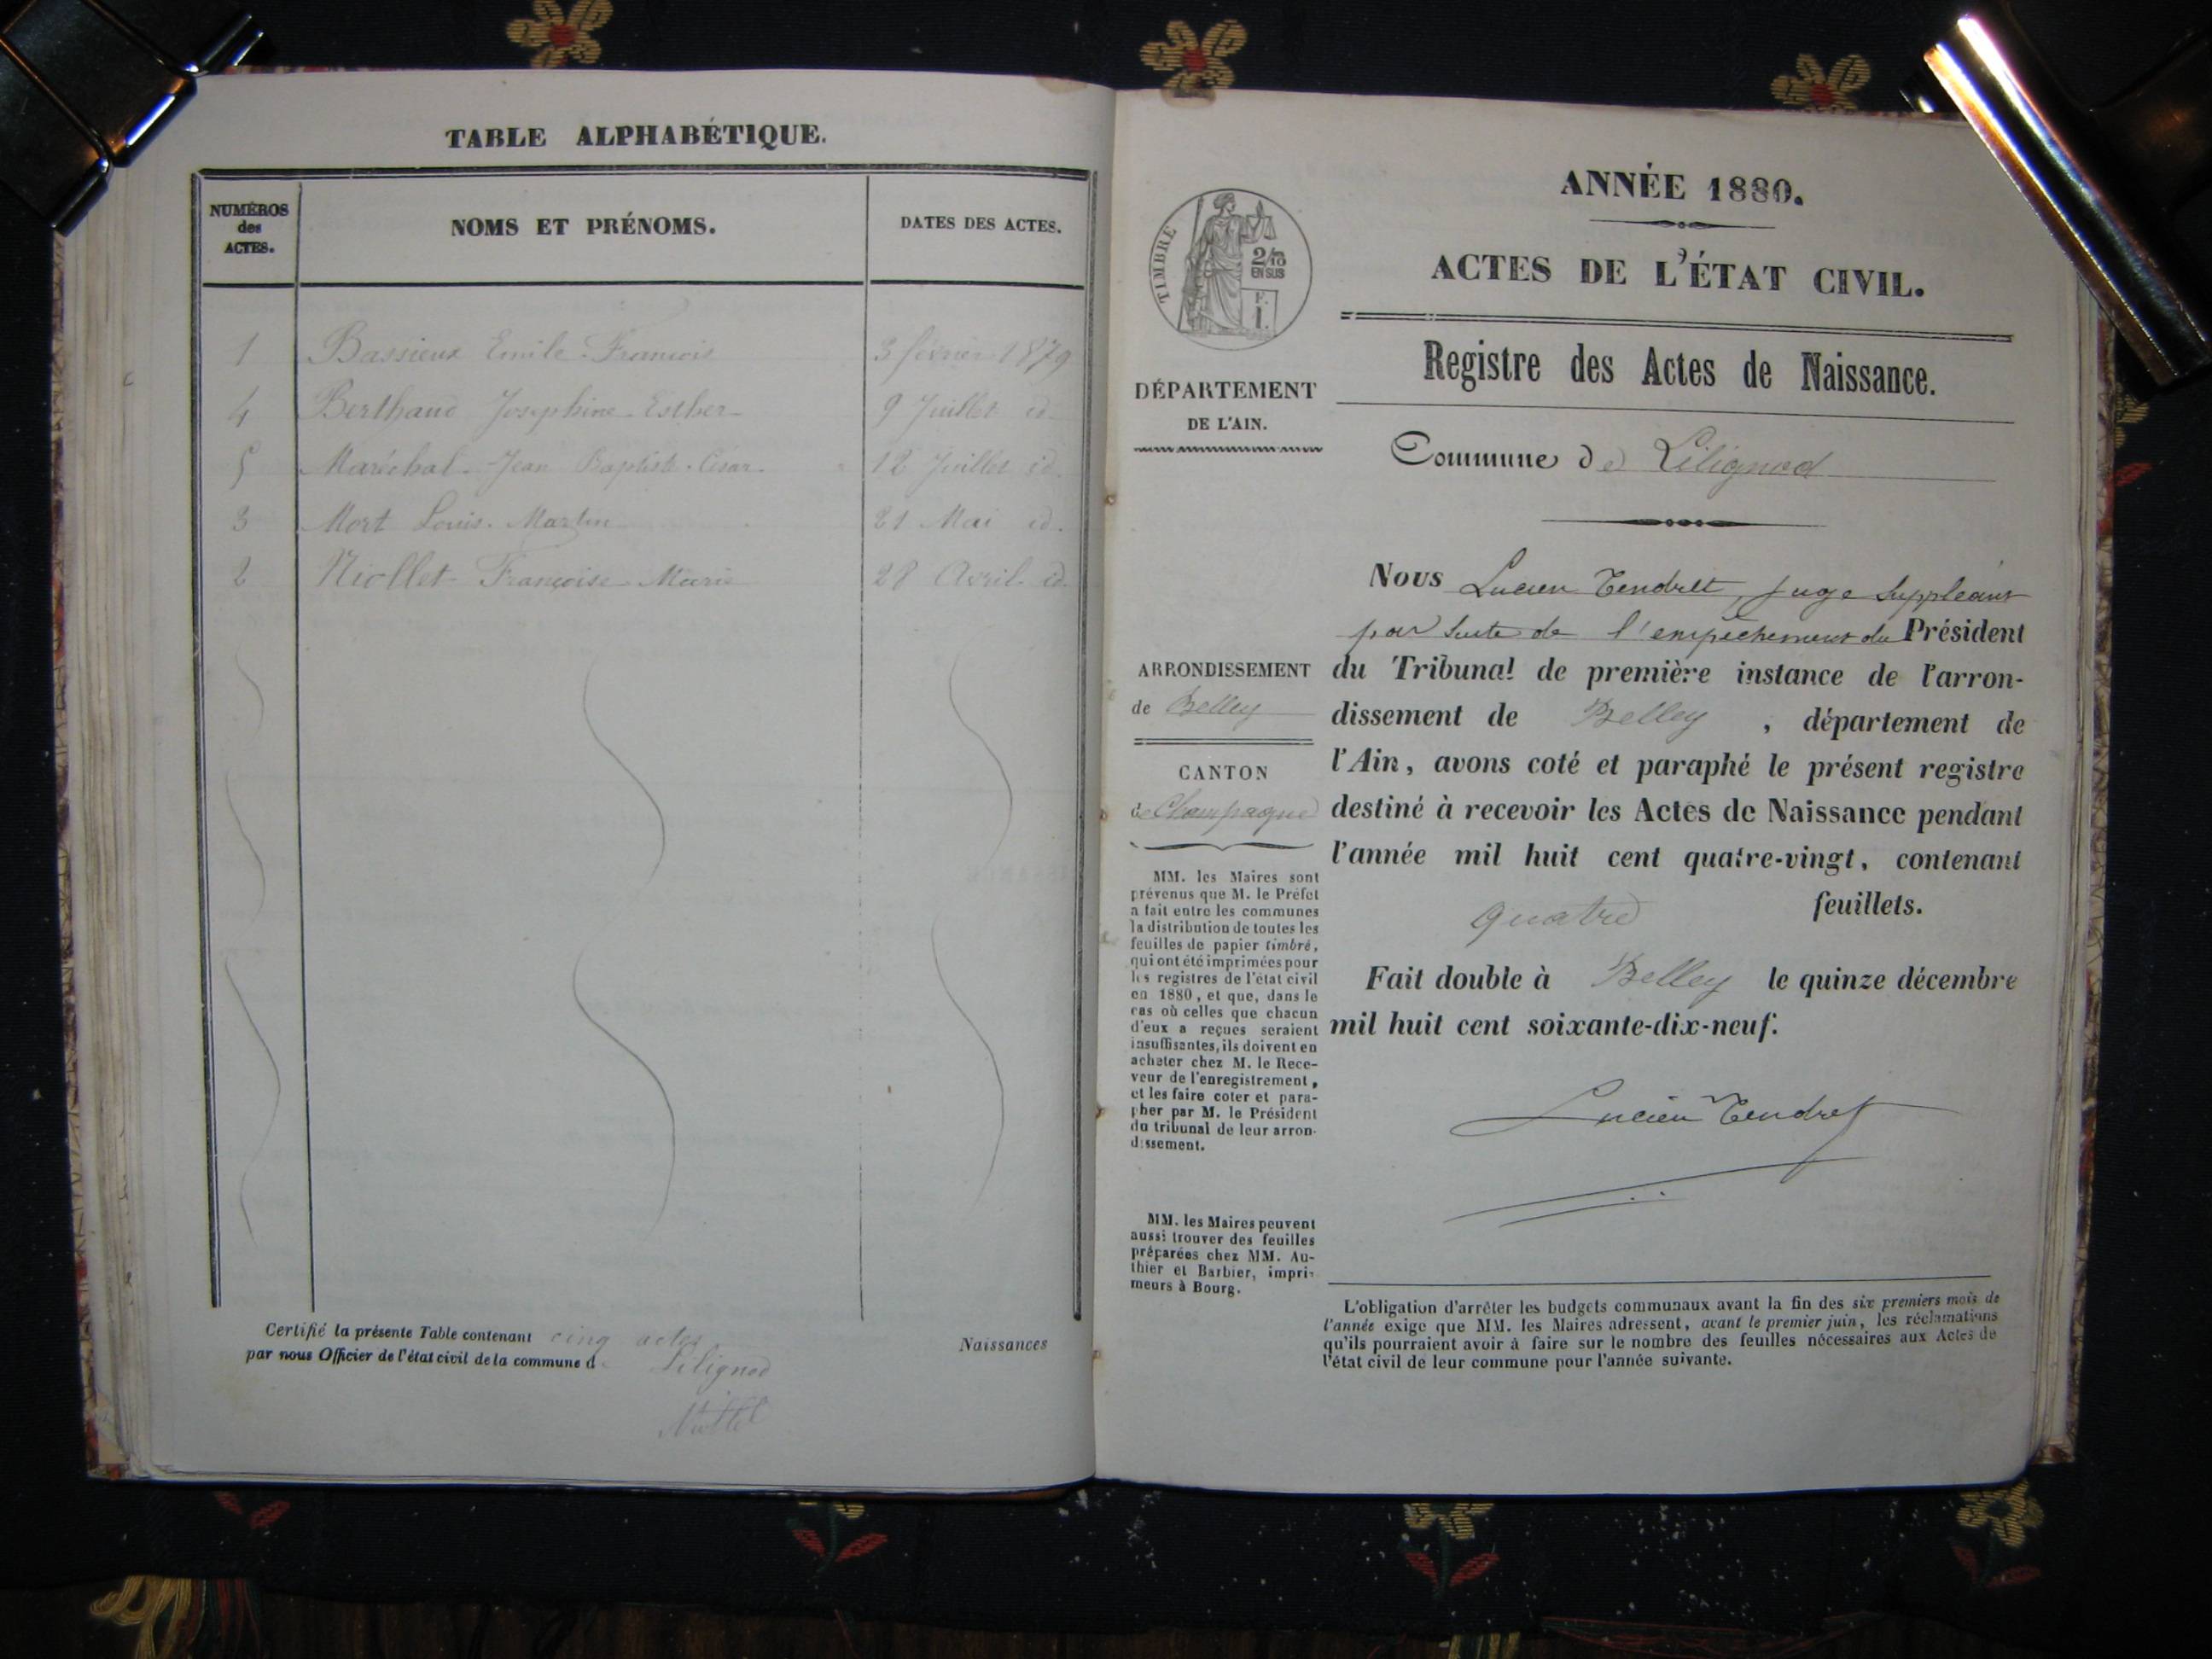 TABLE ALPHABÉTIQUE.
NUMÉROS
des
ACTES.
NOMS ET PRÉNOMS.
DATES DES ACTES.
1 Bassieux Emile François 3 février 1879
4 Berthaud Joséphine Esther 9 Juillet id.
5 Maréchal Jean Baptiste César 12 Juillet id.
3 Mort Louis Martin 21 Mai id.
2 Niollet Françoise Marie 28 Avril id.
Certifié la présente Table contenant cinq actes
par nous Officier de l'état civil de la commune d. Lilignod
Naissances
Niollet
TIMBRE
2/10
EN SUS
F.
1.
DÉPARTEMENT
DE L'AIN.
ARRONDISSEMENT
de Belley
CANTON
de Champagne
MM. les Maires sont
prévenus que M. le Préfet
a fait entre les communes
la distribution de toutes les
feuilles de papier timbré,
qui ont été imprimées pour
les registres de l'état civil
en 1880, et que, dans le
cas où celles que chacun
d'eux a reçues seraient
insuffisantes, ils doivent en
acheter chez M. le Rece-
veur de l'enregistrement,
et les faire coter et para-
pher par M. le Président
du tribunal de leur arron-
dissement.
MM. les Maires peuvent
aussi trouver des feuilles
préparées chez MM. Au-
thier et Barbier, impri-
meurs à Bourg.
ANNÉE 1880.
ACTES DE L'ÉTAT CIVIL.
Registre des Actes de Naissance.
Commune de Lilignod
Nous Lucien Tendret, Juge Suppléant
par suite de l'empêchement du Président
du Tribunal de première instance de l'arron-
dissement de Belley, département de
l'Ain, avons coté et paraphé le présent registre
destiné à recevoir les Actes de Naissance pendant
l'année mil huit cent quatre-vingt, contenant
quatre feuillets.
Fait double à Belley le quinze décembre
mil huit cent soixante-dix-neuf.
Lucien Tendret
L'obligation d'arrêter les budgets communaux avant la fin des six premiers mois de
l'année exige que MM. les Maires adressent, avant le premier juin, les réclamations
qu'ils pourraient avoir à faire sur le nombre des feuilles nécessaires aux Actes de
l'état civil de leur commune pour l'année suivante.